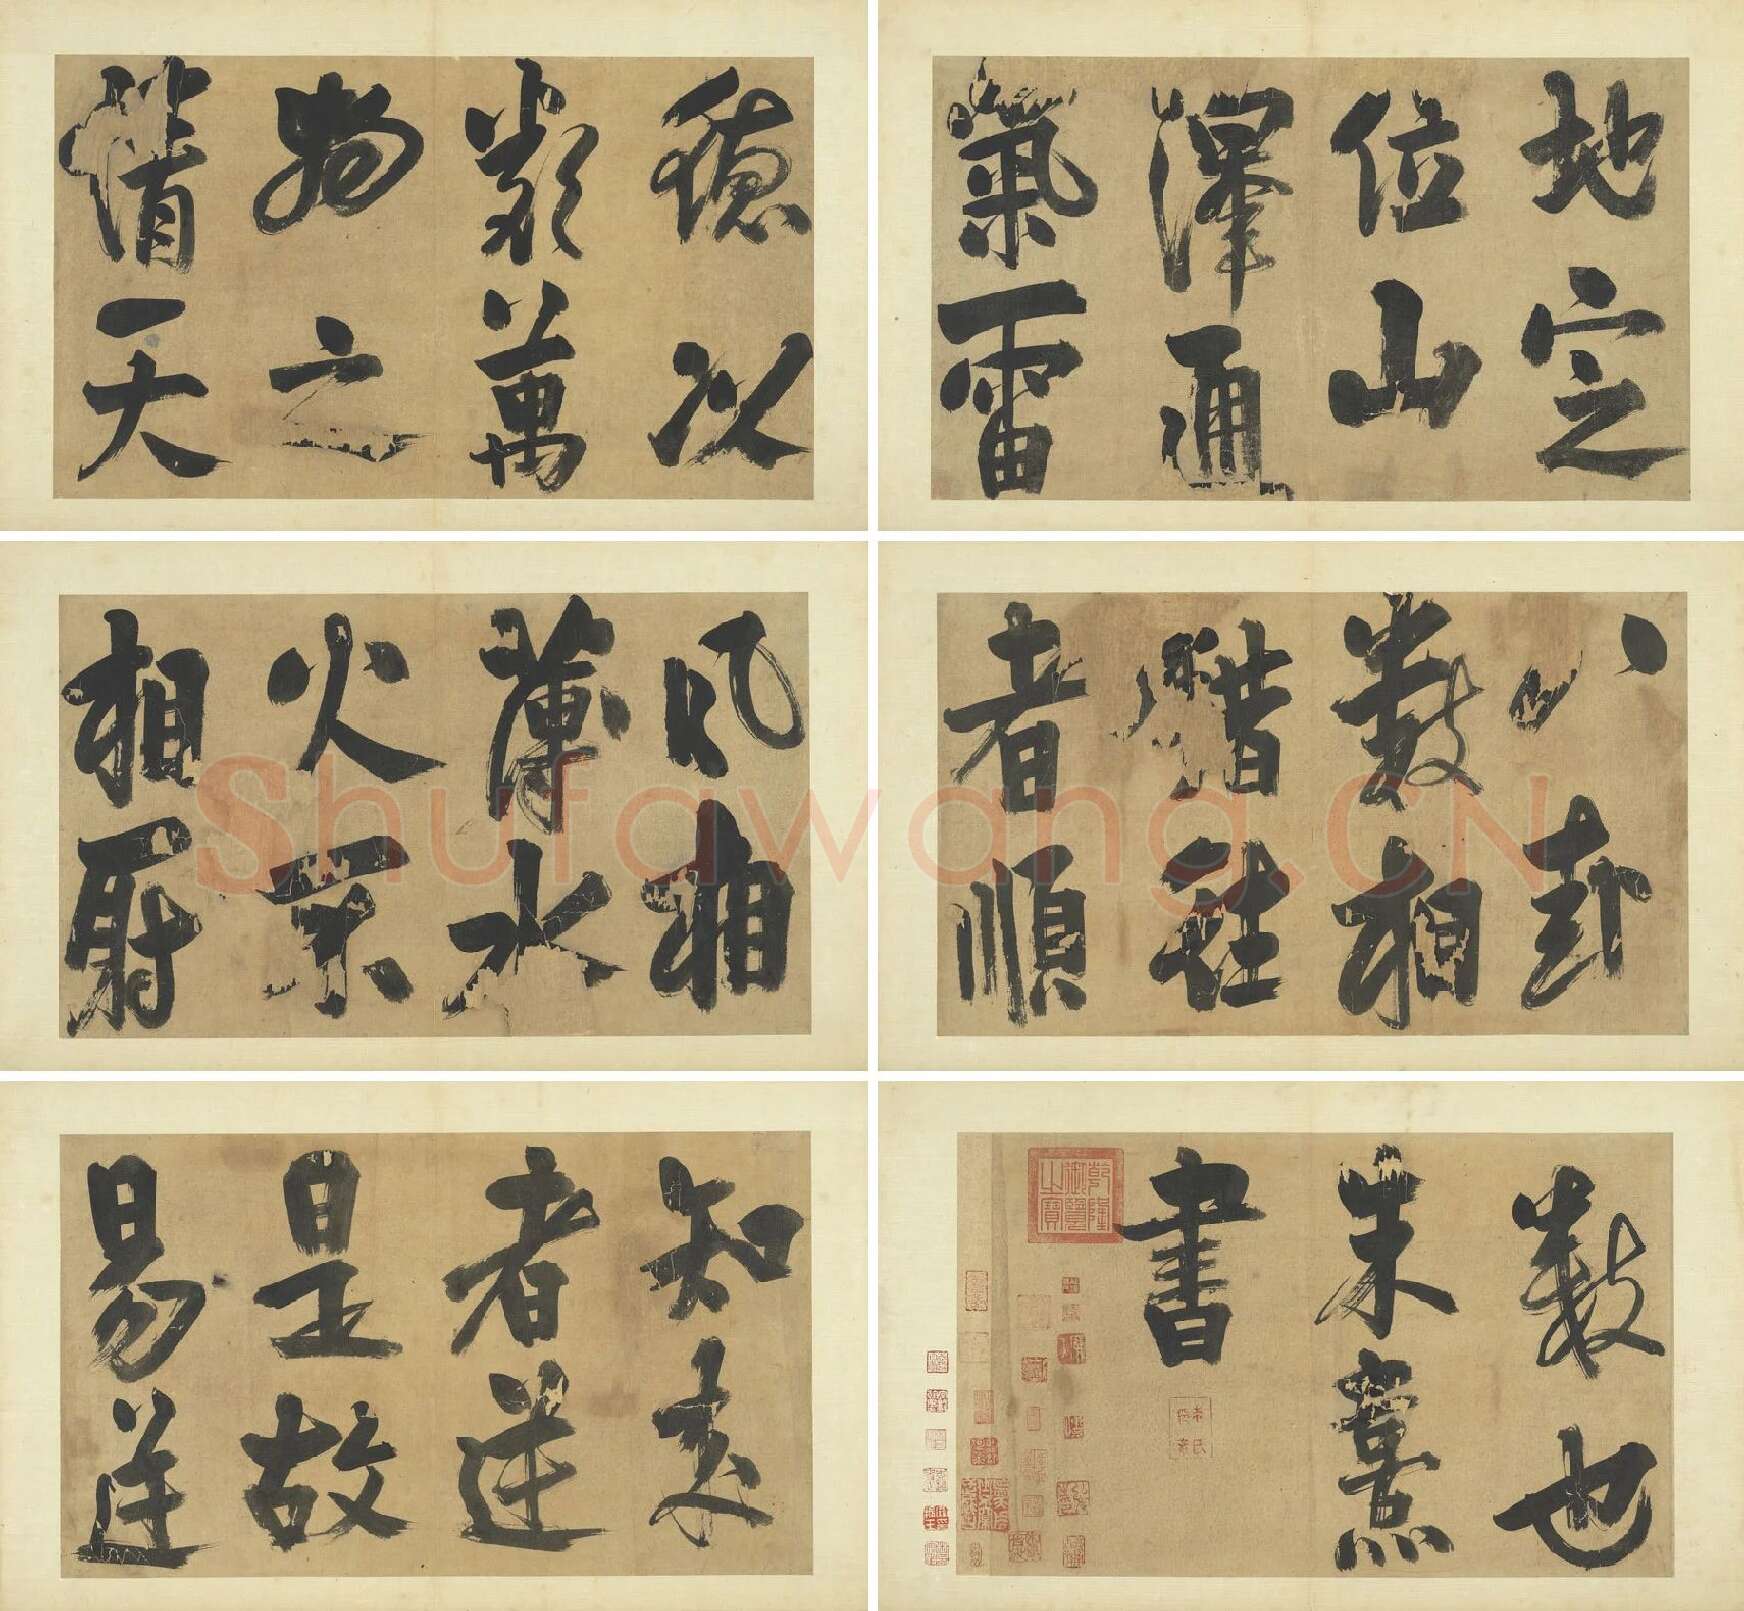 德以
類萬
物之
情天
地定
位山
澤通
氣雷
風相
薄水
火不
相射
八卦
數相
錯往
者順
知來
者逆
是故
易逆
數也
朱熹
書
乾隆御覽之寶
Shufawang.CN